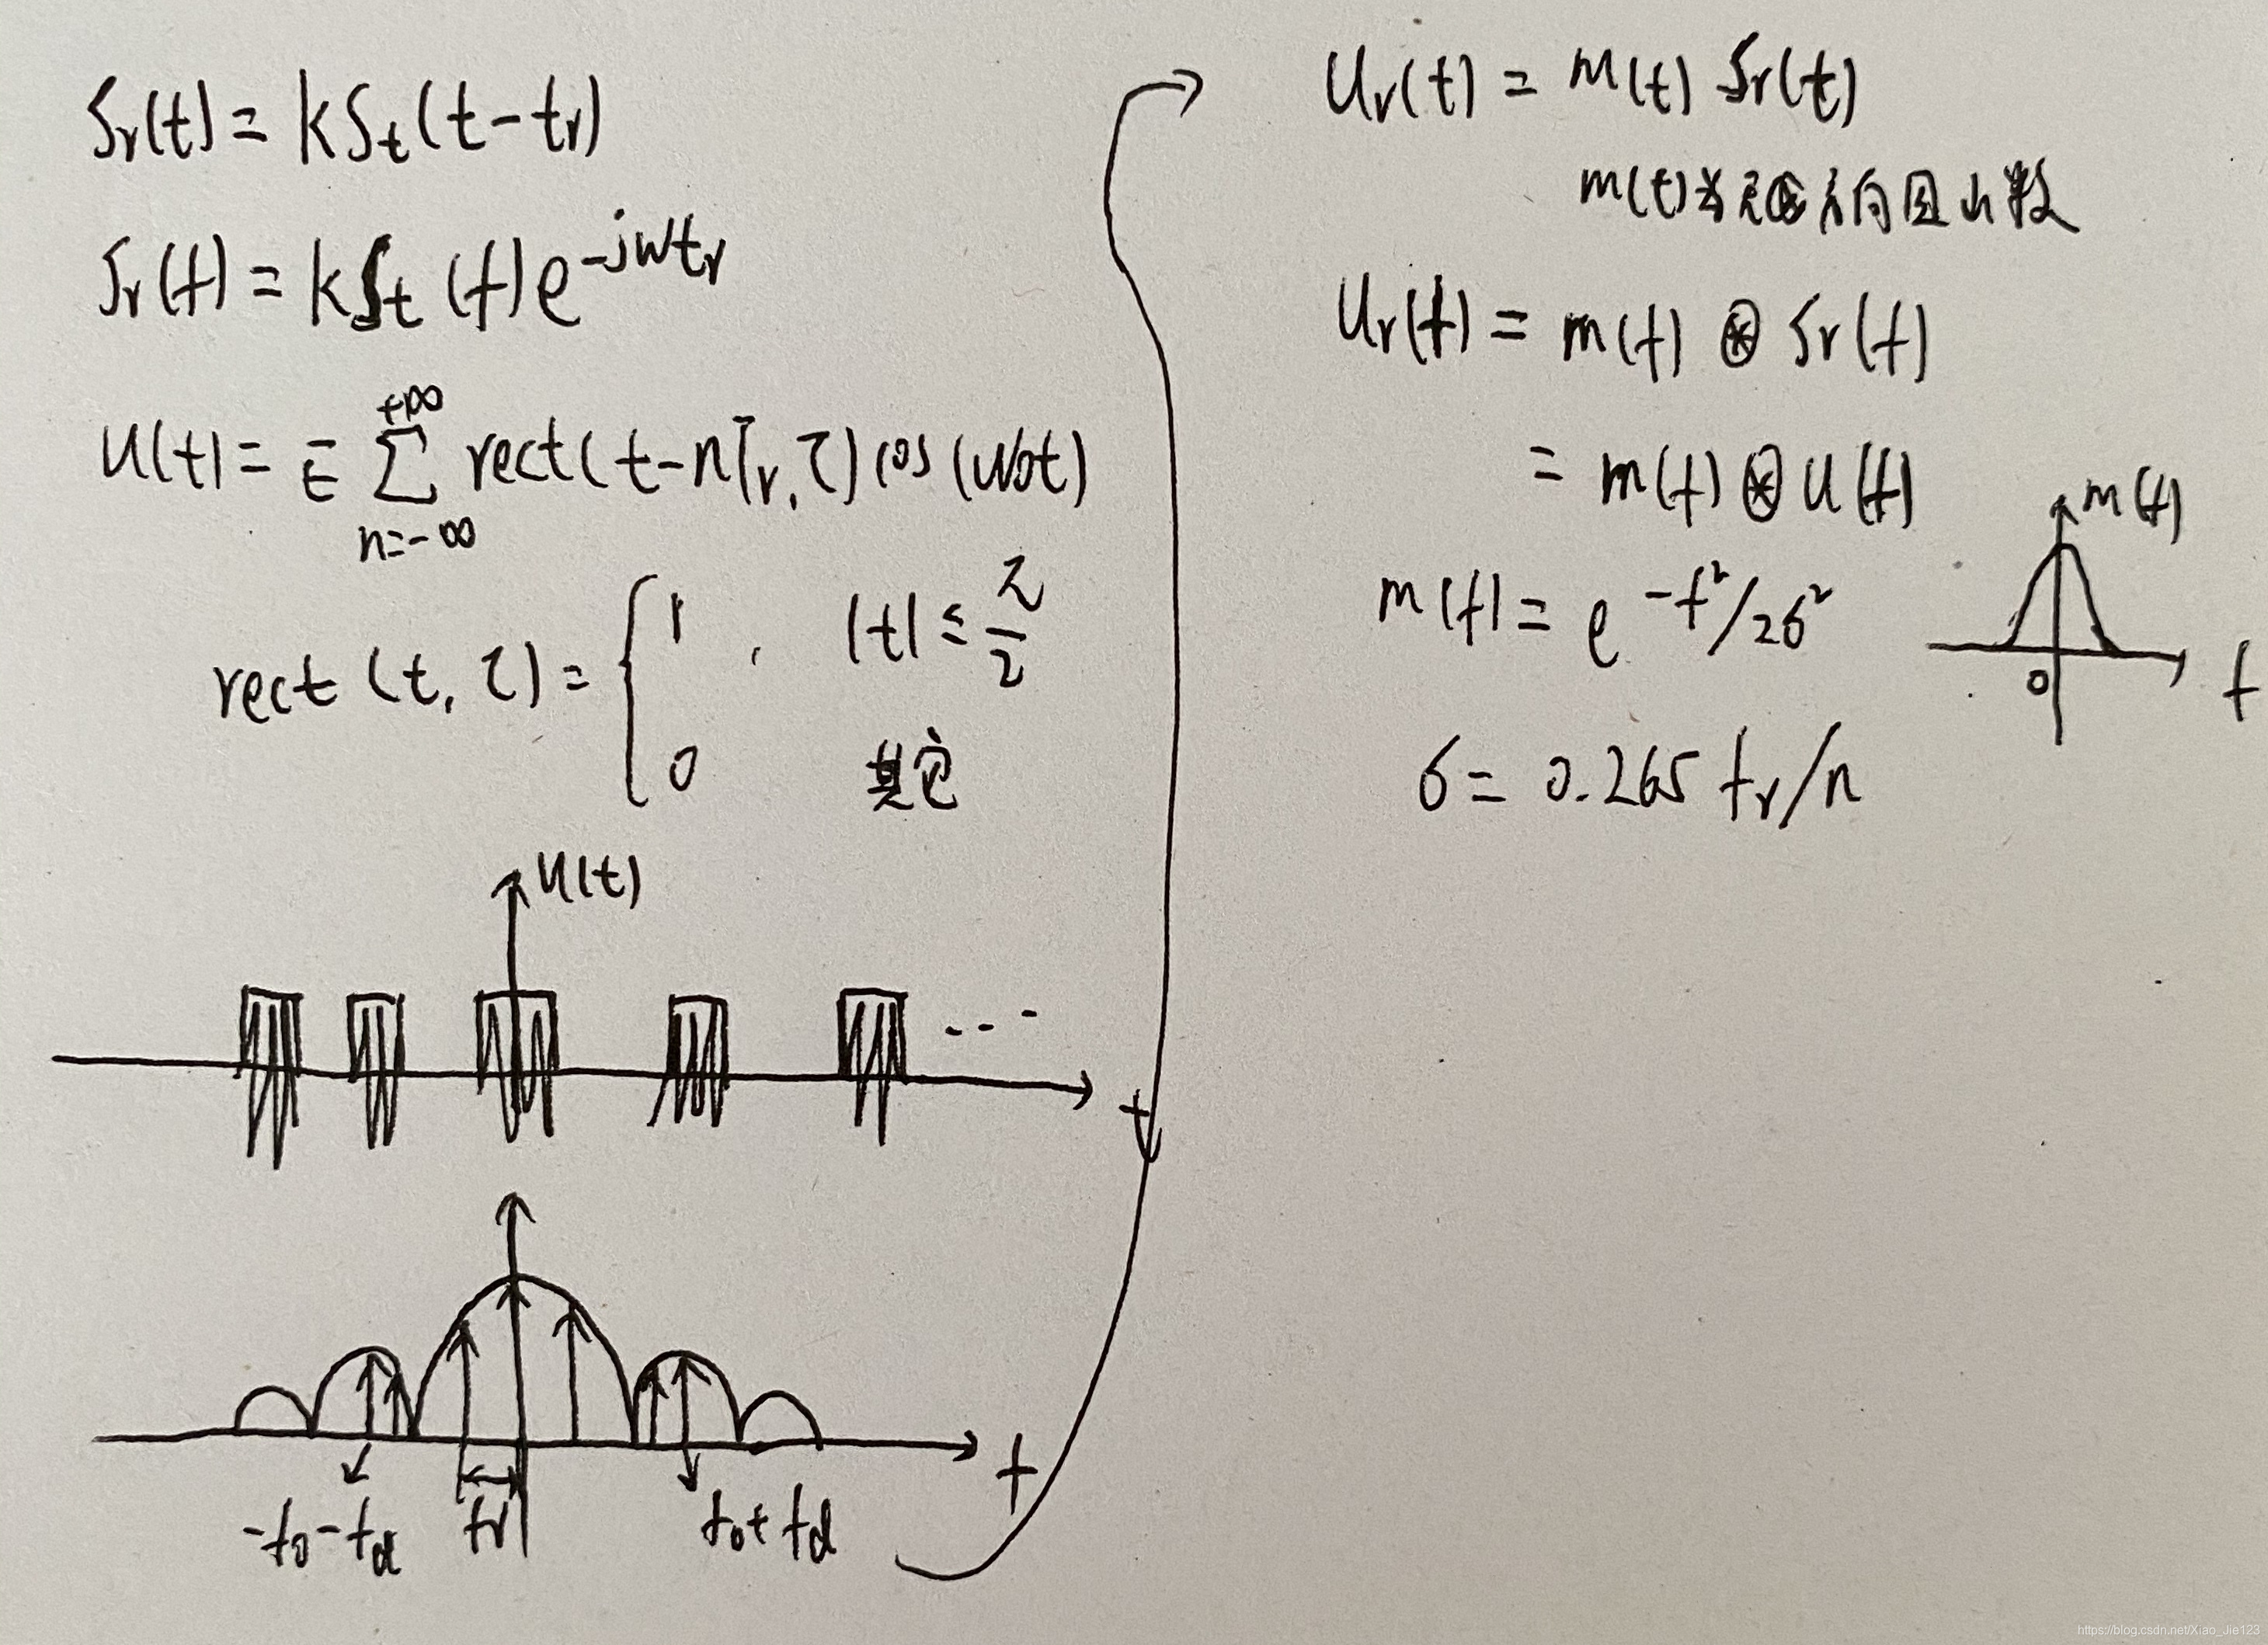 Sr(t) = kSt(t-tr)
Sr(f) = kSt(f)e^{-jwtr}
U(t) = E \sum_{n=-∞}^{+∞} rect(t-nTr, τ) cos(w0t)
rect(t, τ) = { 1, |t| ≤ τ/2
0 其它
U(t)
t
f
-f0-fd
fr
f0+fd
Ur(t) = m(t) Sr(t)
m(t)为 方向图 数
Ur(f) = m(f) ⊛ Sr(f)
= m(f) ⊛ U(f)
m(f)
m(f) = e^{-f²/2σ²}
0
f
σ = 0.265 fr/n
https://blog.csdn.net/Xiao_Jie123